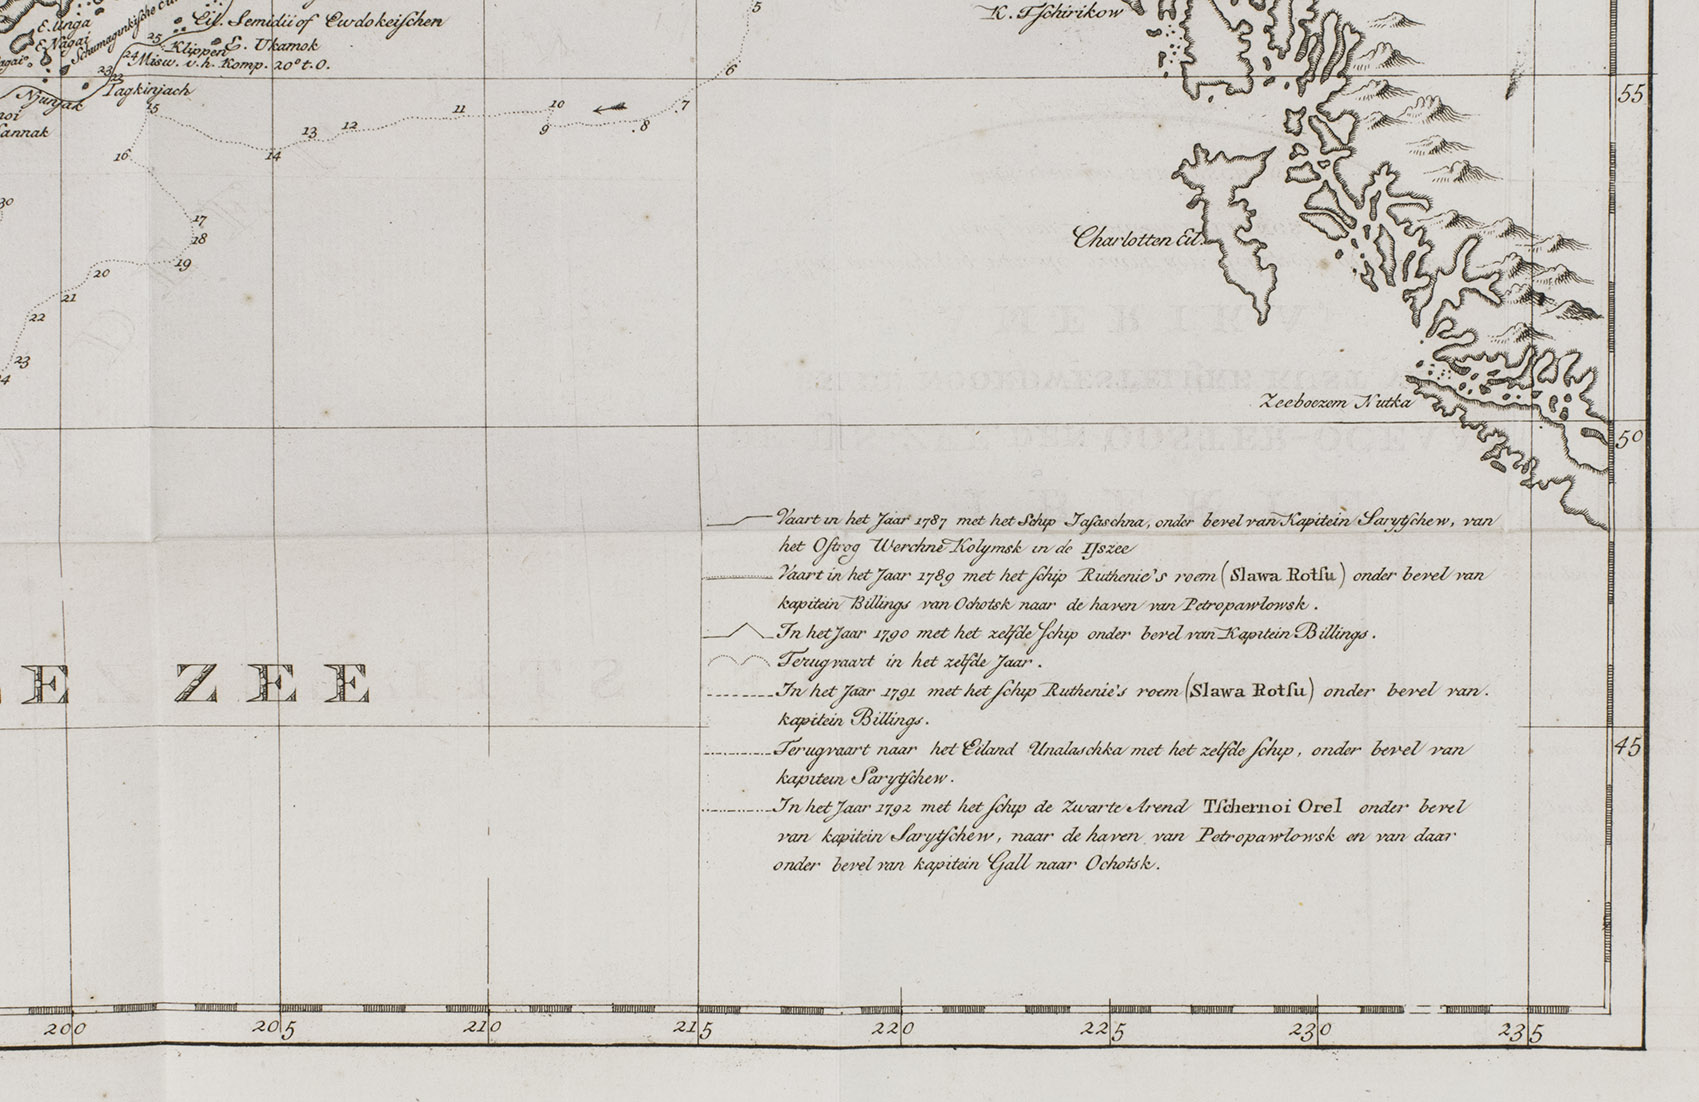 5
K. Tſchirikow
E. Unga
Eil. Semidii of Ewdokeiſchen
E. Nagai
Schumaginkiſche
25
Klippen
E. Ukamok
24
Misw. v. h. Komp. 20° t. O.
23
22
6
Njunjak
Tagkinjach
15
7
55
annak
16
14
13
12
11
10
9
8
30
17
18
19
20
21
22
23
24
Charlotten Eil.
Zeeboezem Nutka
50
Vaart in het Jaar 1787 met het Schip Jaſaschna, onder bevel van Kapitein Sarytſchew, van
het Oſtrog Werchne Kolymsk in de IJszee
Vaart in het Jaar 1789 met het ſchip Ruthenie's roem (Slawa Rotſu) onder bevel van
kapitein Billings van Ochotsk naar de haven van Petropawlowsk.
In het Jaar 1790 met het zelfde ſchip onder bevel van Kapitein Billings.
Terugvaart in het zelfde Jaar.
In het Jaar 1791 met het ſchip Ruthenie's roem (Slawa Rotſu) onder bevel van.
kapitein Billings.
Terugvaart naar het Eiland Unalaschka met het zelfde ſchip, onder bevel van
kapitein Sarytſchew.
In het Jaar 1792 met het ſchip de Zwarte Arend Tſchernoi Orel onder bevel
van kapitein Sarytſchew, naar de haven van Petropawlowsk en van daar
onder bevel van kapitein Gall naar Ochotsk.
E ZEE
45
200 205 210 215 220 225 230 235